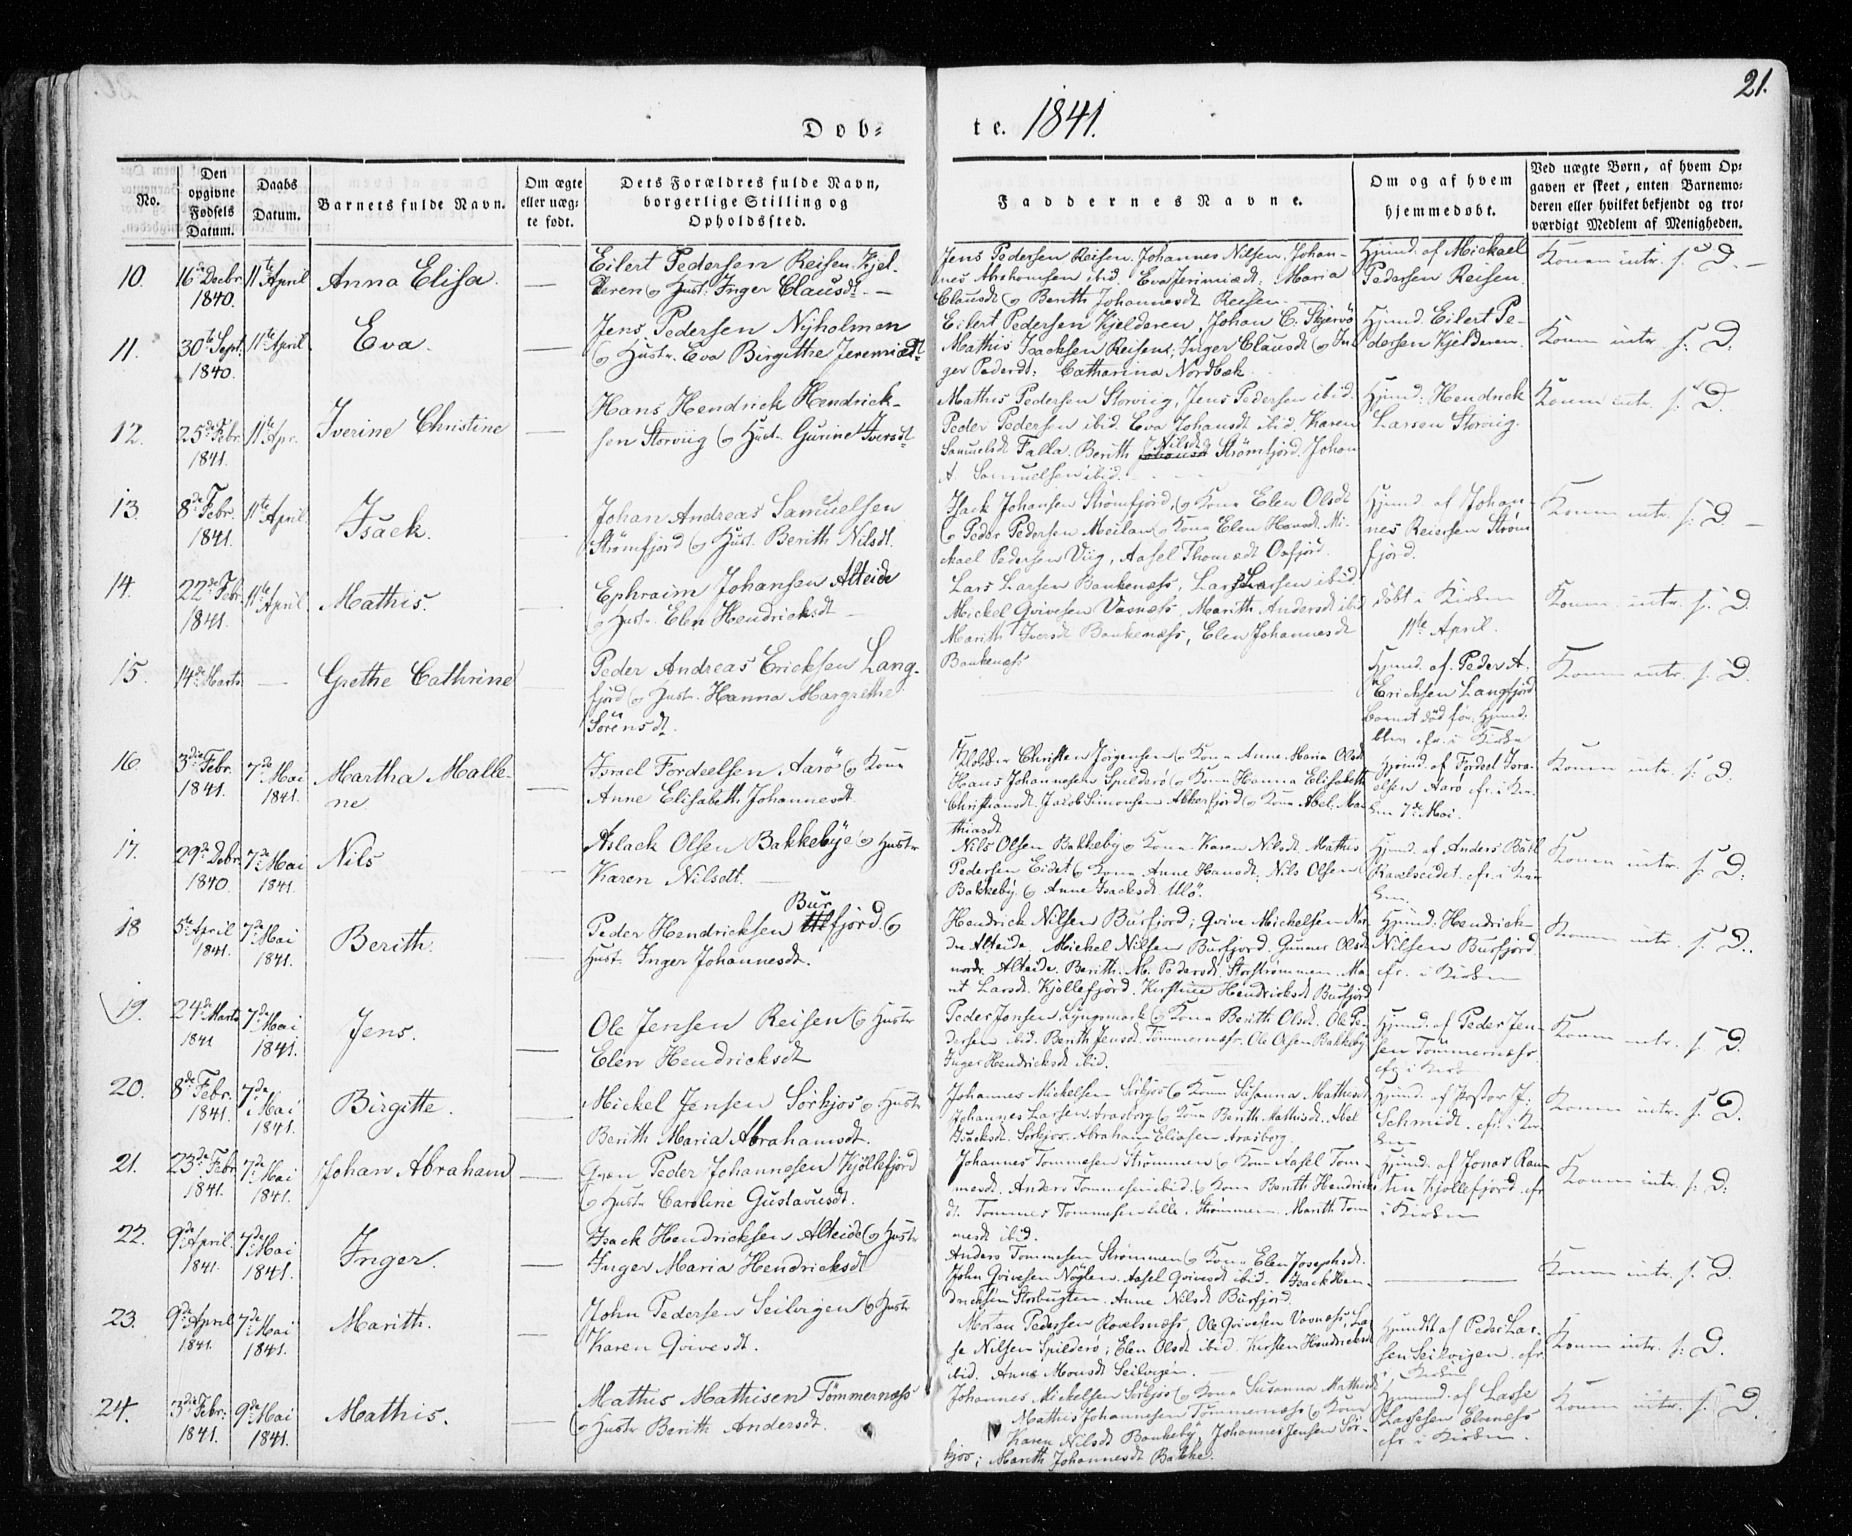 21.
Døb-
te. 1841.
No.
Den opgivne Fødsels Datum.
Daabs Datum.
Barnets fulde Navn.
Om ægte eller uæg-te født.
Dets Forældres fulde Navn, borgerlige Stilling og Opholdssted.
Faddernes Navne.
Om og af hvem hjemmedøbt.
Ved uægte Børn, af hvem Op-
gaven er skeet, enten Barnemo-
deren eller hvilket bekjendt og tro-
værdigt Medlem af Menigheden.
10. 16de Decbr. 1840. 11te April Anna Elisa. —
Eilert Pedersen Reisen Kjel-
deren og Hust. Inger Clausdt. —
Jens Pedersen Reisen, Johannes Nilsen, Johan-
nes Abrahamsen ibid. Eva Jerimiædt: Maria
Clausdt og Berith Johannesdt Reisen.
Hjmd. af Mickael
Pedersen Reisen.
Konen intr. s: D. —
11. 30te Sept. 1840. 11te April. Eva. —
Jens Pedersen Nyholmen
og Hustr. Eva Birgitthe Jeremiædt
Eilert Pedersen Kjelderen, Johan C. Skjervö
Mathis Isacksen Reisen; Inger Clausdt og In-
ger Pedersdt: Catharina Nordbæk.
Hjmd. Eilert Pe-
dersen Kjelderen.
Konen intr s: D:
12. 25de Febr. 1841. 11te Apr. Iverine Christine —
Hans Hendrick Hendrick-
sen Storviig og Hust. Gurine Iversdt
Mathis Pedersen Storviig, Jens Pedersen ibid.
Peder Pedersen ibid. Eva Johansdt ibid. Karen
Samuelsdt Falla. Berith Nilsdt Strømfjord. Johan
A. Samuelsen ibid.
Hjmd. Hendrick
Larsen Storviig.
Konen intr. s: D.
13. 8de Febr. 1841. 11te April Isack.
Johan Andreas Samuelsen
Strømfjord og Hust. Berith Nilsdt.
Isack Johansen Strømfjord, og Kone Elen Olsdt
og Peder Pedersen Meilan og Kone Elen Hansdt. Mi-
ckael Pedersen Viig, Aasel Thomædt Oxfjord.
Hjmd. af Johan-
nes Reiersen Strøm
fjord.
Konen intr s: D. —
14. 22de Febr. 1841. 11te April Mathis. —
Ephraim Johansen Alteide
og Hustr. Elen Hendricksdt —
Lars Larsen Bankenæss, Lars Larsen ibid.
Mickel Qvivesen Vasnæss, Marith Andersdt ibid
Marith Iversdt Bankenæss, Elen Johannesdt
Bankenæss
döbt i Kirken
11te April.
Konen intr. s: D.
15. 14de Marts — Grethe Cathrine —
Peder Andreas Ericksen Lang-
fjord og Hustr. Hanna Margrethe
Sörensdt.
Hjmd. af Peder A.
Ericksen Langfjord
Barnet död för Hjmd.
blev cfr. i Kirke
Konen intr. s: D.
16. 3die Febr. 1841. 7de Mai 1841. Martha Malle-
ne —
Israel Fordeelsen Aarö og Kone
Anne Elisabeth Johannesdt.
Christen Jörgensen og Kone Anne Maria Olsdt
Hans Johannesen Spilderö og Kone Hanna Elisabeth
Christiansdt, Jacob Simonsen Akkerfjord og Kone Abel Ma-
thiasdt
Hjmd. af Fordeel Isra-
elsen Aarö cfr. i Kir-
ken 7de Mai.
Konen intr. s: D.
17. 29de Decbr. 1840. 7de Mai 1841. Nils —
Aslack Olsen Bakkebye og Hustr
Karen Nilsdt. —
Nils Olsen Bakkeby og Kone Karen Nilsdt. Mathis
Pedersen Eidet og Kone Anne Hansdt; Nils Olsen
Bakkeby, og Anne Isacksdt Ulö.
Hjmd. af Anders
Ravelseidet cfr. i Kir-
ken.
Konen intr. s: D:
18 5te April 1841. 7de Mai 1841. Berith. —
Peder Hendricksen Burfjord og
Hust. Inger Johannesdt.
Hendrick Nilsen Burfjord; Qvive Mickelsen Nor-
dre Alteide. Mickel Nilsen Burfjord. Gunner Olsdt
nordr. Alteide. Berith M. Pedersdt. Storströmmen. Ma-
rit Larsdt. Kjöllefjord. Kerstine Hendricksdt Burfjord
Hjmd. Hendrick
Nilsen Burfjord
cfr. i Kirken
Konen intr. s: D..
19. 24de Marts 1841 7de Mai 1841. Jens. —
Ole Jensen Reisen og Hustr
Elen Hendricksdt
Peder Jensen Lyngsmark og Kone Berith Olsdt. Ole Pe-
dersen ibid. Berith Jensdt. Tömmernæss. Ole Olsen Bakkeby
Inger Hendricksdt ibid.
Hjmd. af Peder Jen-
sen Tömmernæss.
cfr i Kirk
Konen intr. s: D.
20. 8de Febr. 1841. 7de Mai 1841. Birgitte. —
Mickel Jensen Sörkjos og Hustr
Berith Maria Abrahamsdt.
Johannes Mickelsen Sörkjos og Kone Susanna Mathisdt
Johannes Larsen Arasborg og Kone Berith Mathisdt. Abel
Isacksdt. Sörkjos. Abraham Eliasen Arasborg.
Hjmd. af Pastor J:
Schmidt. cfr. i Kir-
ken
Konen intr. s: D.
21. 23de Febr 1841. 7de Mai 1841. Johan Abraham —
Peder Johannesen Kjöllefjord
og Hustr Caroline Gustavusdt.
Johannes Tommesen Strömmen og Kone Aasel Tom-
mesdt. Anders Tommesen ibid. og Kone Berith Hendricks-
dt. Tommes Tommesen Lille. Strömmen. Marith Tom
mesdt ibid.
Hjmd. af Jonas Ras-
tin Kjöllefjord cfr
i Kirken
Konen intr. s: D:
22. 9de April. 1841. 7de Mai 1841. Inger. —
Isack Hendricksen Alteide og Hustr
Inger Maria Hendricksdt
Anders Tommesen Strömmen og Kone Elen Josephsdt.
John Qvivesen Nöglen. Aasel Qvivesdt ibid. Isack Hen-
dricksen Storbugten. Anne Nilsdt Burfjord.
—
Konen intr. s: D.
23. 9de April 1841. 7de Mai 1841. Marith. —
John Pedersen Seilvigen og Hustr
Karen Qvivesdt.
Morten Pedersen Ravelsnæss, Ole Qvivesen Vasnæss, La-
se Nilsen Spilderö; Elen Olsdt ibid. Kirsten Hendricksdt
ibid. Anne Monsdt Seilvigen.
Hjmdt af Peder Lar-
sen Seilvigen cfr.
i Kirken
Konen intr. s: D.
24. 3de Febr. 1841. 9de Mai 1841. Mathis. —
Mathis Mathisen Tömmernæss
og Hustr Berith Andersdt.
Johannes Mickelsen Sörkjos og Kone Susanna Mathisdt
Mathis Johannesen Tömmernæss og Kone
Karen Nilsdt Bankeby, Johannes Jensen Sör-
kjos; Marith Johannesdt Bakke.
Hjmmd. af Lasse
Lassesen Elvenæss
cfr. i Kirken.
Konen intr. s: D.